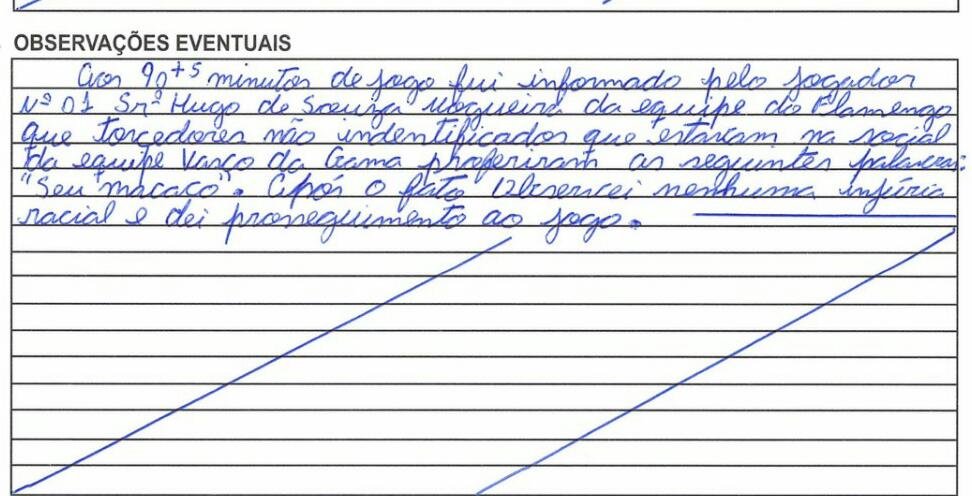 OBSERVAÇÕES EVENTUAIS
Aos 90+5 minutos de jogo fui informado pelo jogador
Nº 01 Srº Hugo de Souza Nogueira da equipe do Flamengo
que torcedores não indentificados que estavam na social
da equipe Vasco da Gama proferiram as seguintes palavras:
"Seu macaco". Após o fato observei nenhuma injúria
racial e dei prosseguimento ao jogo.